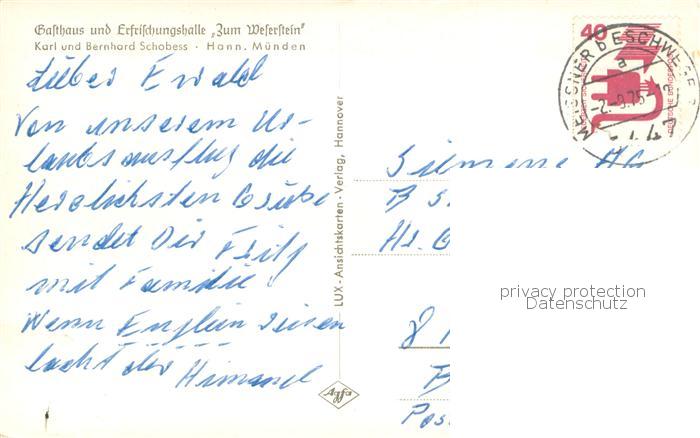 Gasthaus und Erfrischungshalle „Zum Weserstein"
Karl und Bernhard Schobess · Hann. Münden
Lieber Ewald
Von unserem Ur-
laubsausflug die
Herzlichsten Grüße
sendet Dir Fritz
mit Familie!
Wenn Englein reisen
lacht der Himmel
LUX-Ansichtskarten-Verlag, Hannover
Agfa
40
DEUTSCHE BUNDESPOST
MEISSNER b ESCHWEGE
a
-2.-9.75
Siemens AG
privacy protection
Datenschutz
8